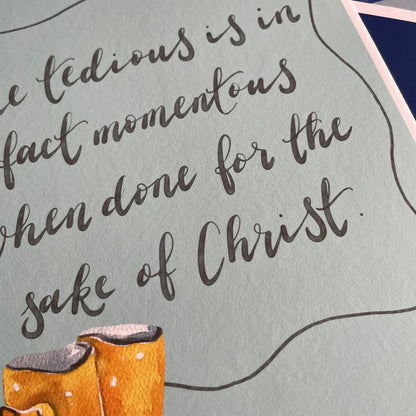 tedious is in
fact momentous
when done for the
sake of Christ.